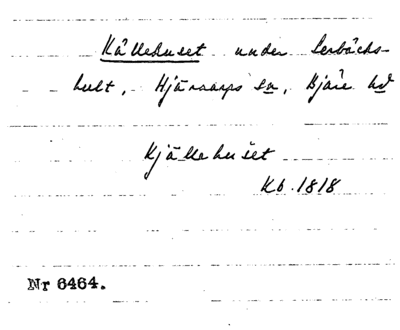 Källehuset under Lerbäcks-
hult, Hjärnarps sn, Bjäre hd
Kjällehuset
Kb. 1818
Nr 6464.